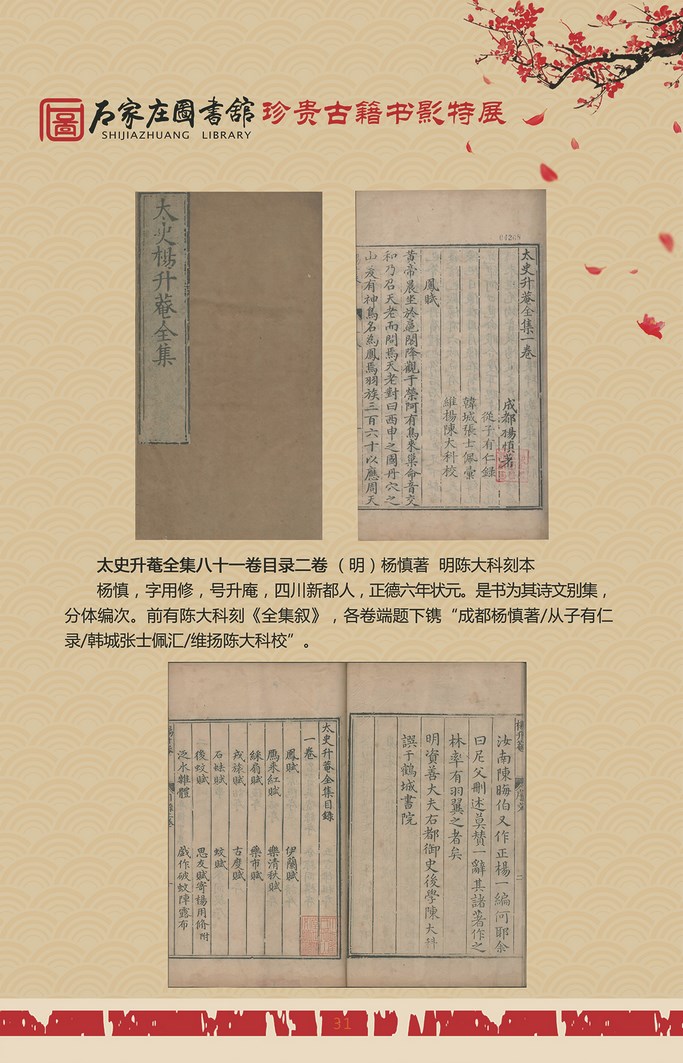 石家庄圖書舘 珍贵古籍书影特展
SHIJIAZHUANG LIBRARY
太史楊升菴全集
太史升菴全集一卷
成都楊慎著
從子有仁錄
韓城張士佩彙
維楊陳大科校
鳳賦
黃帝晨坐於扈閣降觀于榮阿有鳥來巢命音交
和乃召天老而問焉天老對曰西申之國丹穴之
山爰有神鳥名為鳳焉羽族三百六十以應周天
太史升菴全集八十一卷目录二卷 （明）杨慎著 明陈大科刻本
杨慎，字用修，号升庵，四川新都人，正德六年状元。是书为其诗文别集，
分体编次。前有陈大科刻《全集叙》，各卷端题下镌“成都杨慎著/从子有仁
录/韩城张士佩汇/维扬陈大科校”。
汝南陳晦伯又作正楊一編何耶余
曰尼父刪述莫贊一辭其諸著作之
林率有羽翼之者矣
明資善大夫右都御史後學陳大科
譔于鶴城書院
太史升菴全集目錄
一卷
鳳賦 伊蘭賦
鴈來紅賦 樂清秋賦
綠扇賦 藥市賦
戎旅賦 古度賦
石妹賦 蚊賦
後蚊賦 思友賦寄楊用脩附
泛水雜體 戲作破蚊陣露布
31